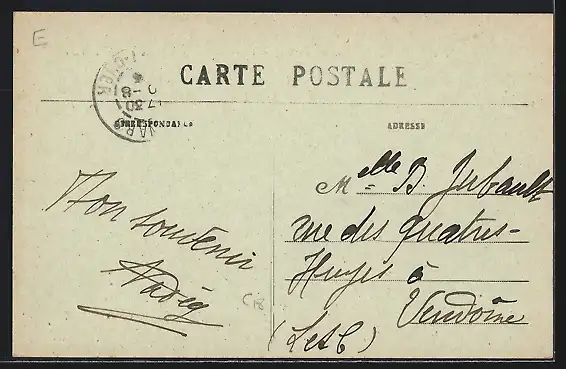 E
CARTE POSTALE
CORRESPONDANCE
ADRESSE
Mon souvenir
Melle B. Jubault
rue des quatres-
Huyes à
Vendôme
(L et C)